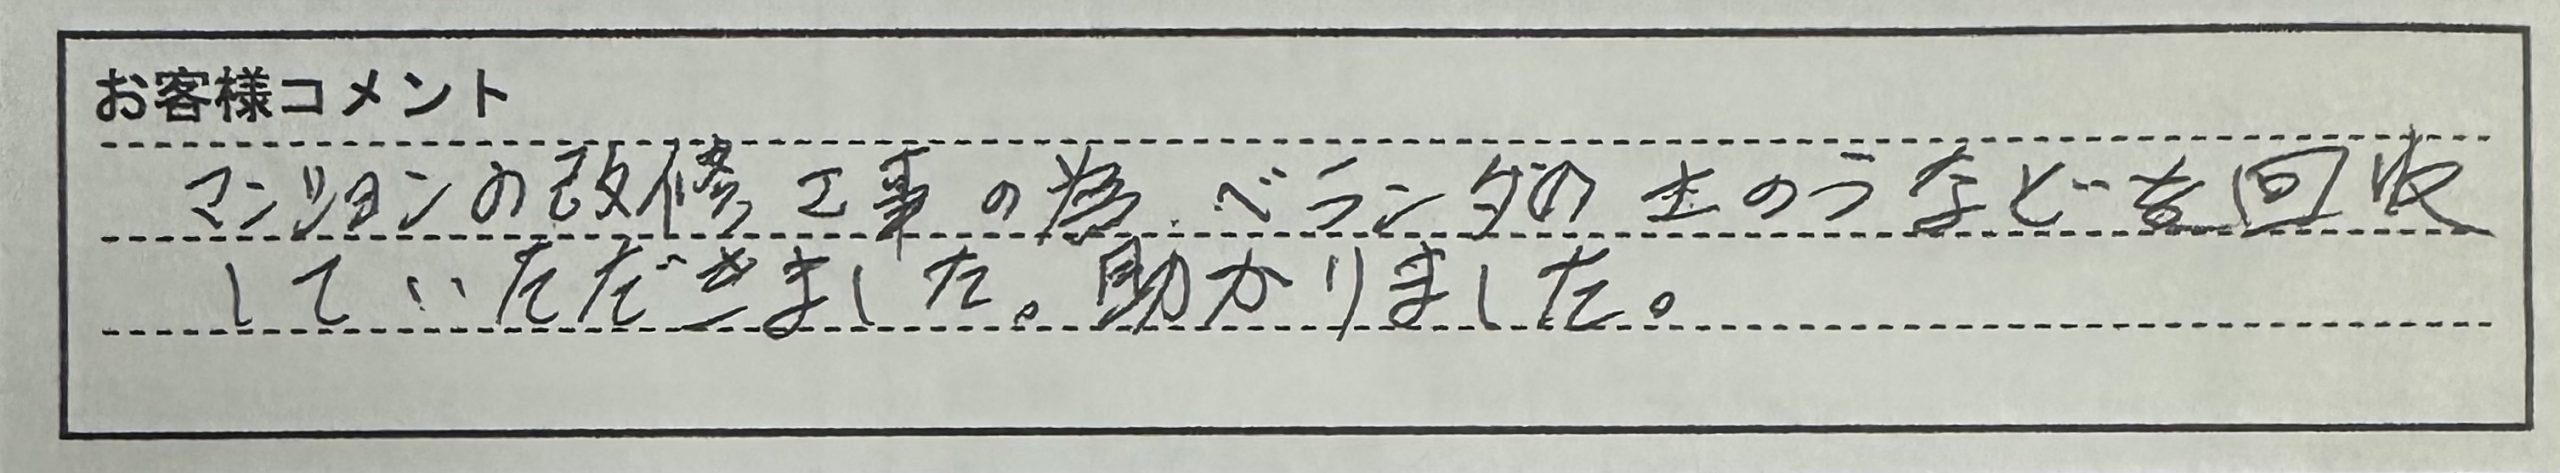 お客様コメント
マンションの改修工事の為、ベランダの土のうなどを回収
していただきました。助かりました。